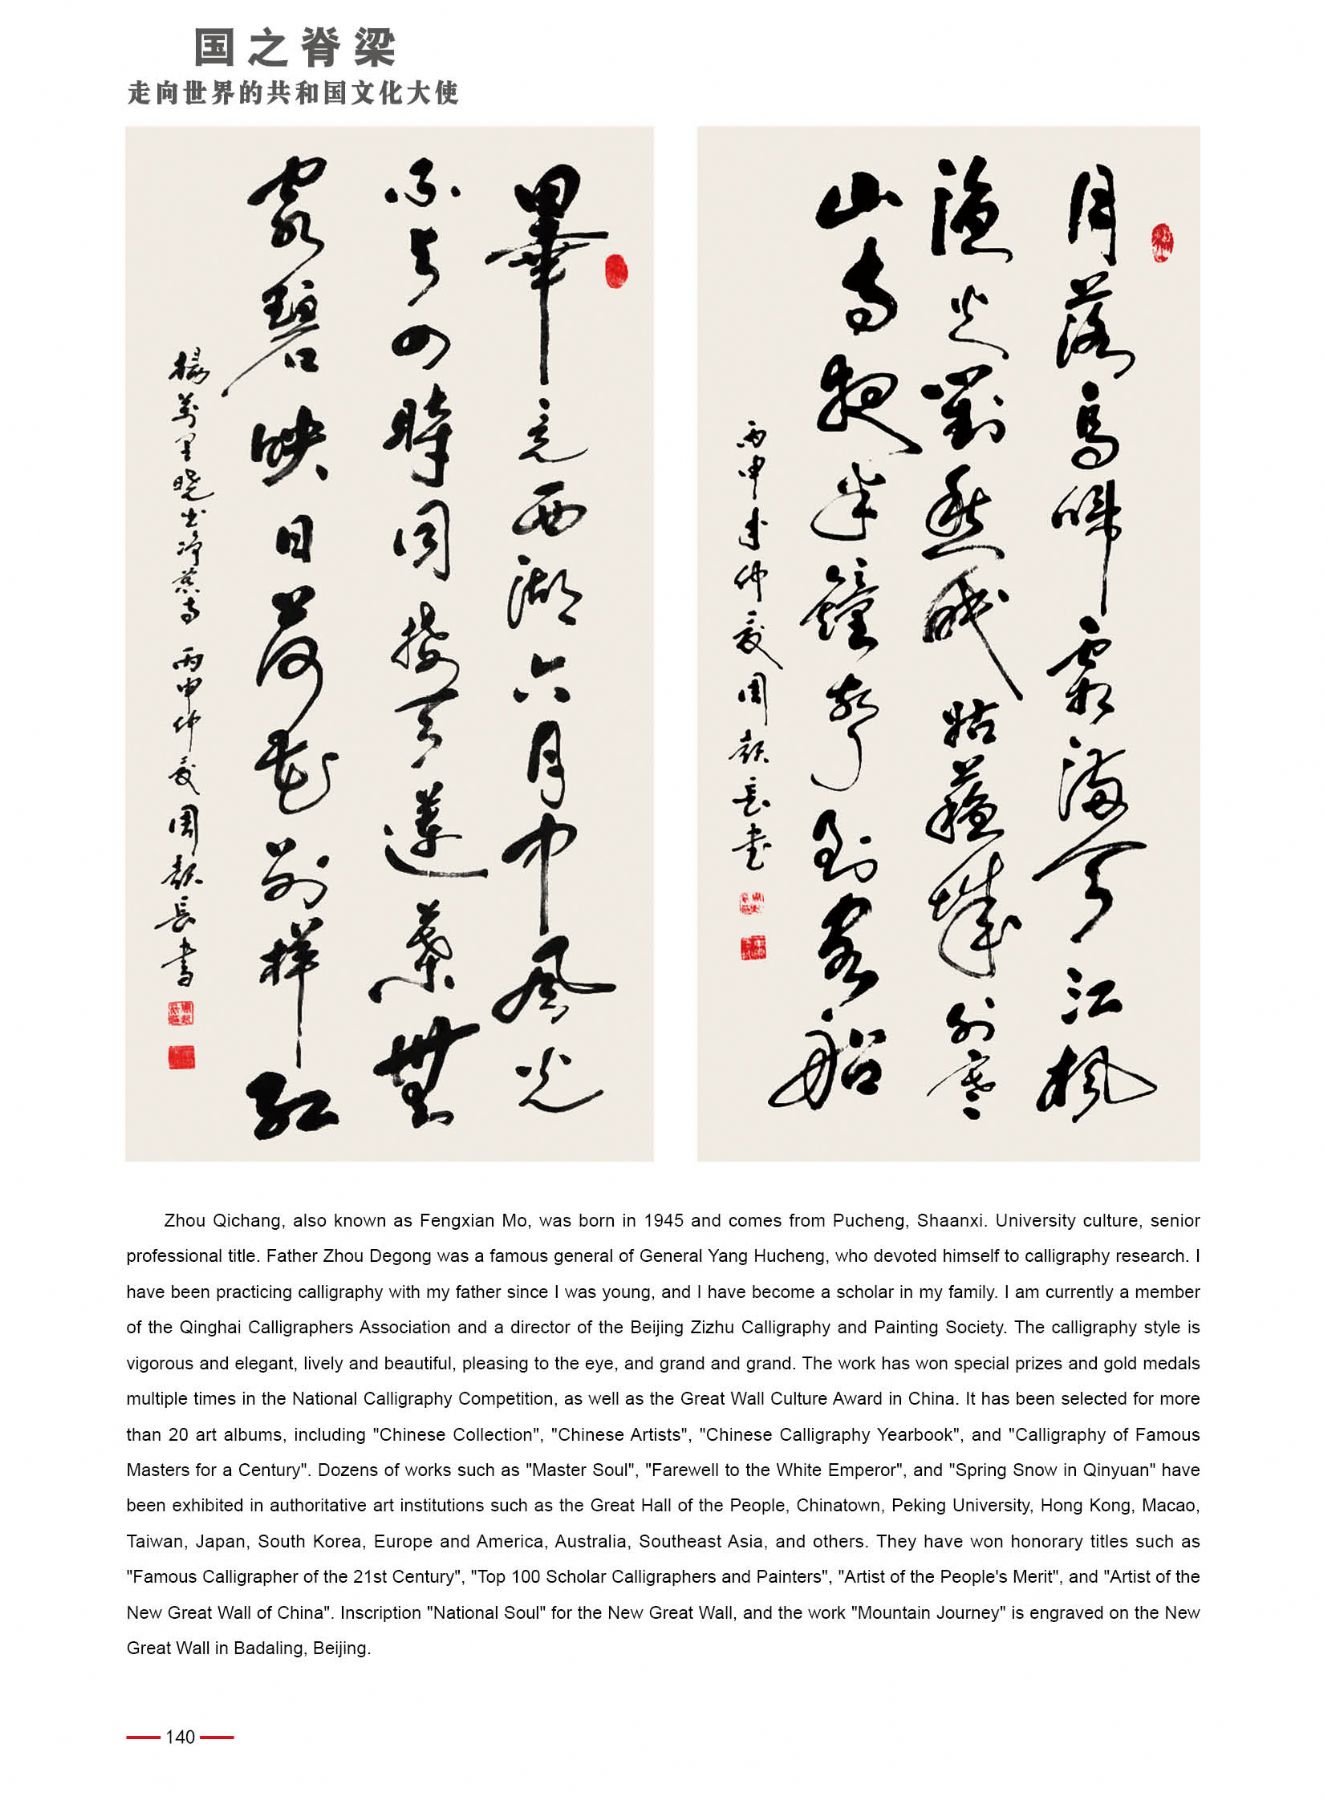 国之脊梁
走向世界的共和国文化大使
畢竟西湖六月中風光
不与四時同接天蓮葉無
窮碧映日荷花别樣紅
楊萬里曉出净慈寺 丙申仲夏周長書
月落烏啼霜滿天江楓
漁火對愁眠姑蘇城外寒
山寺夜半鐘聲到客船
丙申年仲夏周長書
Zhou Qichang, also known as Fengxian Mo, was born in 1945 and comes from Pucheng, Shaanxi. University culture, senior
professional title. Father Zhou Degong was a famous general of General Yang Hucheng, who devoted himself to calligraphy research. I
have been practicing calligraphy with my father since I was young, and I have become a scholar in my family. I am currently a member
of the Qinghai Calligraphers Association and a director of the Beijing Zizhu Calligraphy and Painting Society. The calligraphy style is
vigorous and elegant, lively and beautiful, pleasing to the eye, and grand and grand. The work has won special prizes and gold medals
multiple times in the National Calligraphy Competition, as well as the Great Wall Culture Award in China. It has been selected for more
than 20 art albums, including "Chinese Collection", "Chinese Artists", "Chinese Calligraphy Yearbook", and "Calligraphy of Famous
Masters for a Century". Dozens of works such as "Master Soul", "Farewell to the White Emperor", and "Spring Snow in Qinyuan" have
been exhibited in authoritative art institutions such as the Great Hall of the People, Chinatown, Peking University, Hong Kong, Macao,
Taiwan, Japan, South Korea, Europe and America, Australia, Southeast Asia, and others. They have won honorary titles such as
"Famous Calligrapher of the 21st Century", "Top 100 Scholar Calligraphers and Painters", "Artist of the People's Merit", and "Artist of the
New Great Wall of China". Inscription "National Soul" for the New Great Wall, and the work "Mountain Journey" is engraved on the New
Great Wall in Badaling, Beijing.
140